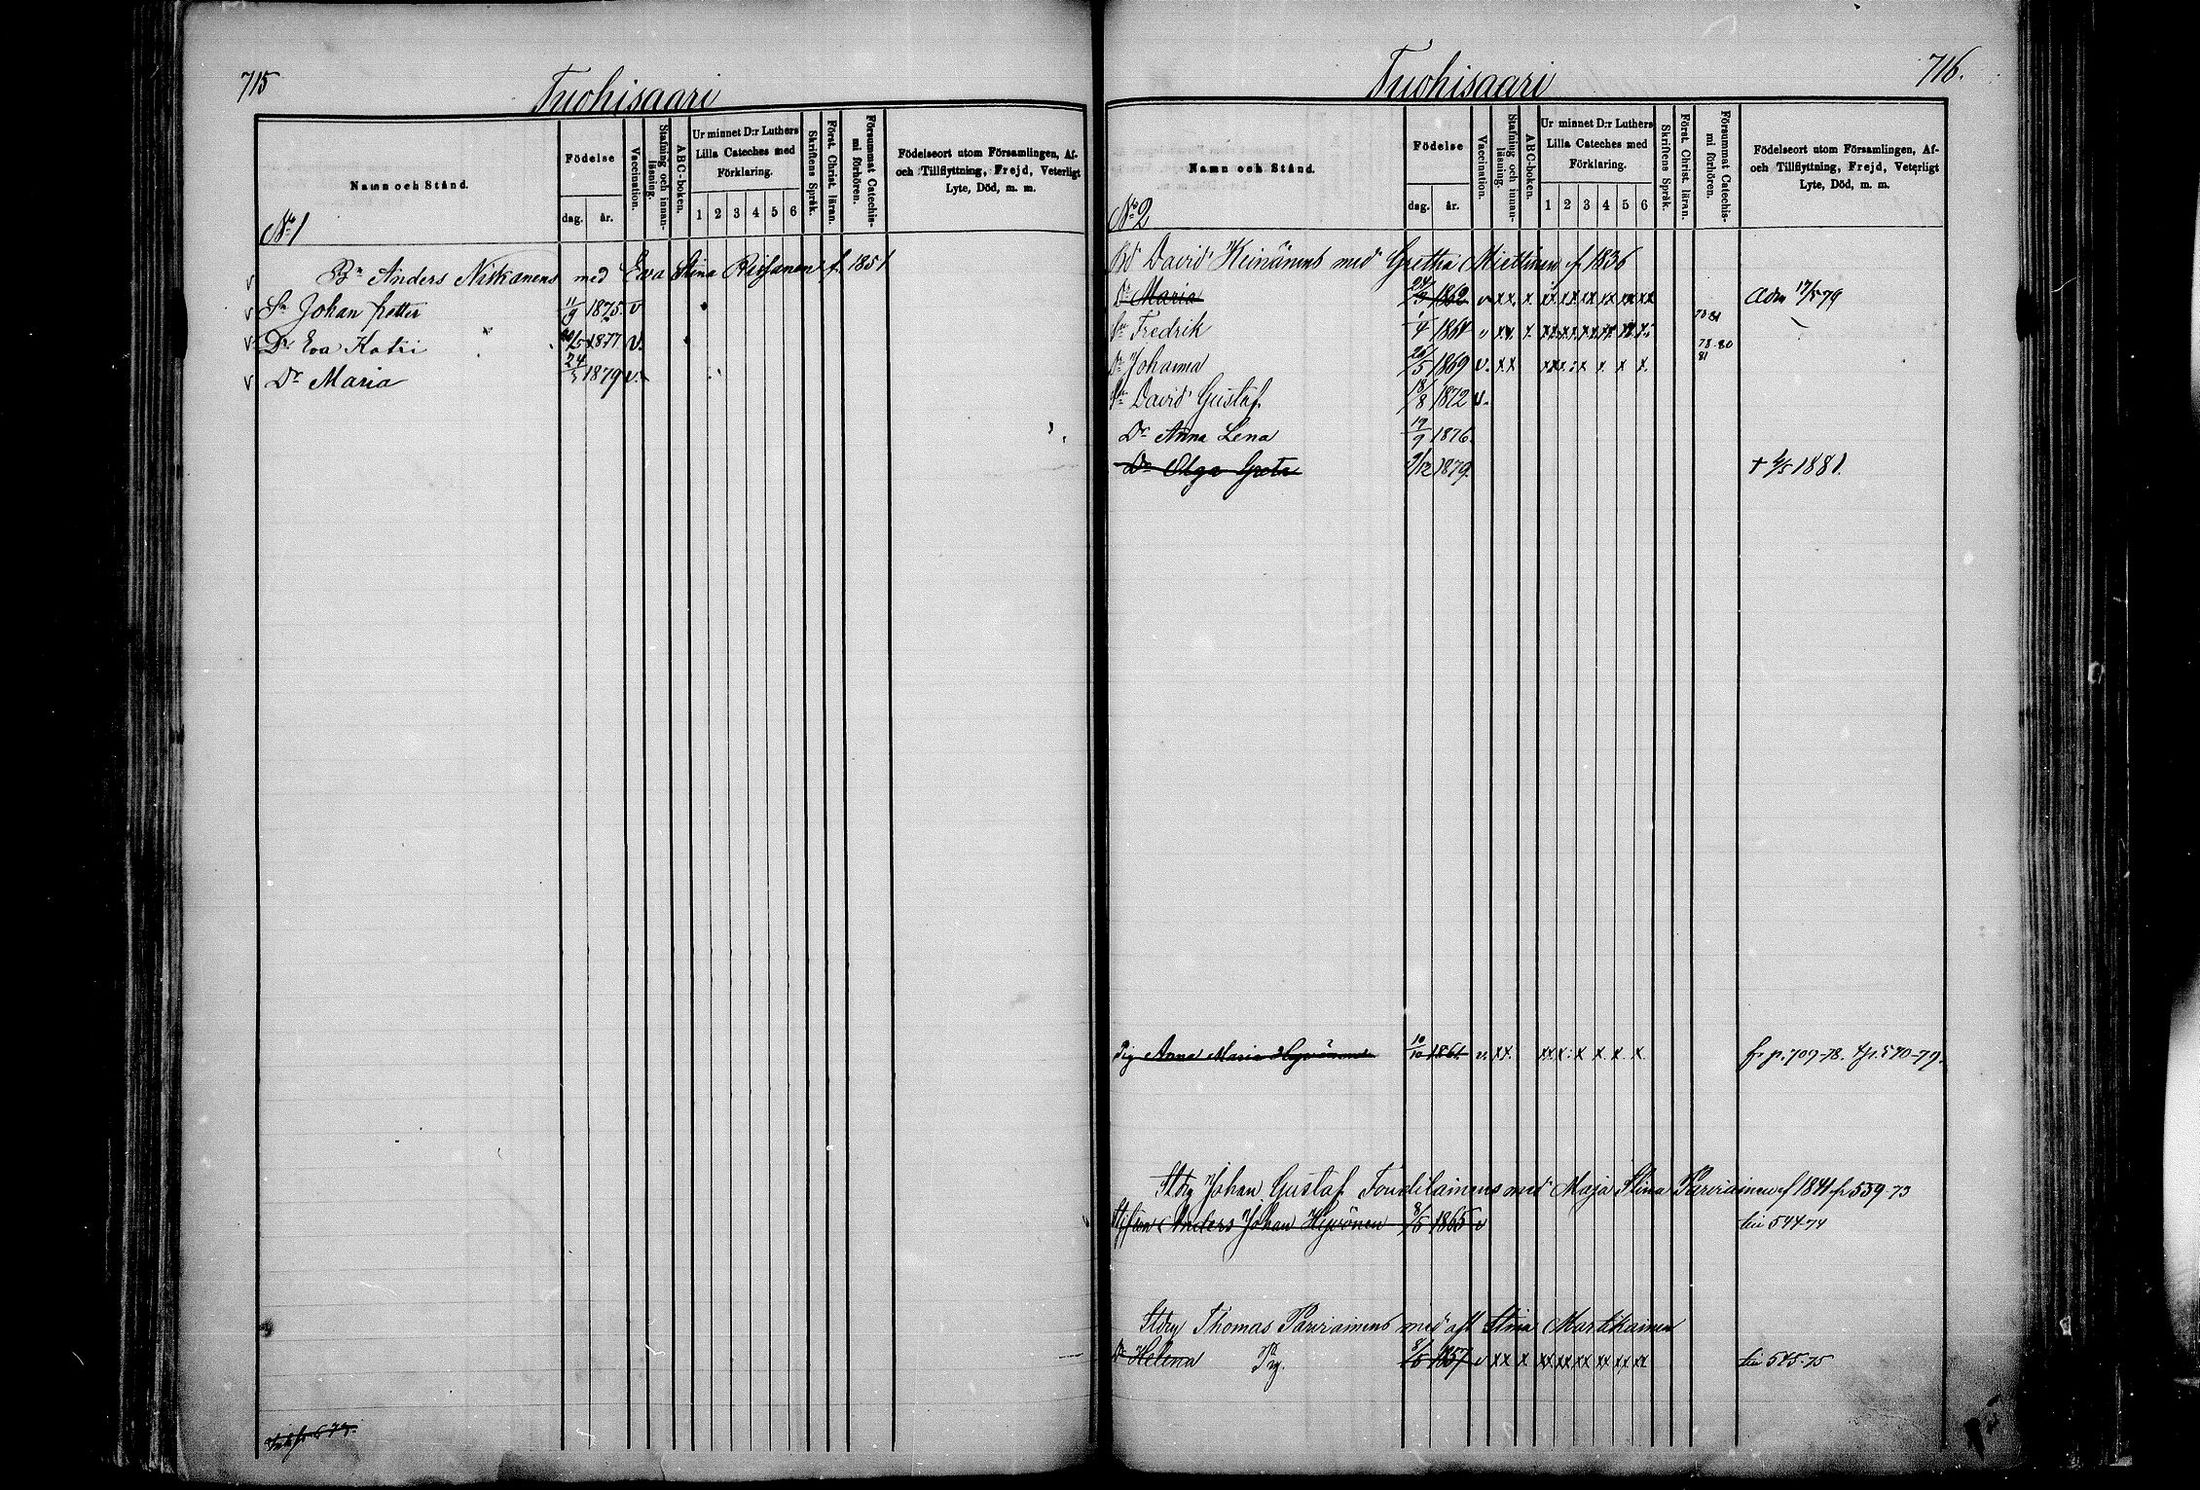 715
Tuohisaari
Namn och Stånd.
Födelse
dag. år.
Vaccination.
Stafning och innanläsning.
ABC-boken.
Ur minnet D:r Luthers Lilla Cateches med Förklaring.
1 2 3 4 5 6
Skriftens Språk.
Först. Christ. läran.
Försummat Catechismi förhören.
Födelseort utom Församlingen, Af- och Tillflyttning, Frejd, Veterligt Lyte, Död, m. m.
No 1
v Bn Anders Niskanens med Eva Stina Reijonen f. 1851
v Sn Johan Petter 11/9 1875 v
v Dr Eva Katri 1877 v.
v Dr Maria 24/3 1879 v.
716.
Tuohisaari
Namn och Stånd.
Födelse
dag. år.
Vaccination.
Stafning och innanläsning.
ABC-boken.
Ur minnet D:r Luthers Lilla Cateches med Förklaring.
1 2 3 4 5 6
Skriftens Språk.
Först. Christ. läran.
Försummat Catechismi förhören.
Födelseort utom Församlingen, Af- och Tillflyttning, Frejd, Veterligt Lyte, Död, m. m.
No 2
David Heinänens med Gretha Miettinen f 1836
Dr Maria 1862 v xx x xx xx xx xx xx xx Adm 17/5 79
Sn Fredrik 1/4 1864 " xx x xx xx xx xx xx x 
Dr Johanna 26/5 1869 v. xx 78-80 81
Sn David Gustaf 18/8 1872 v.
Dr Anna Lena 19/9 1876.
Dr Olga Greta 2/12 1879. + 4/5 1881.
Pig Anna Maria Hyvönen 10/10 1861 v xx xx x x x x x fr p. 709-78. t p. 540-79.
Stdrg Johan Gustaf med Maja Stina Parviainen f 1841 fr 539-73
Anders Johan Hyvönen 8/5 1865 v 544-74
Stdrg Thomas Parviainens med afl Stina Martikainen
Dr Helena Pig. 1857 v xx x xx xx xx xx xx xx 545-75